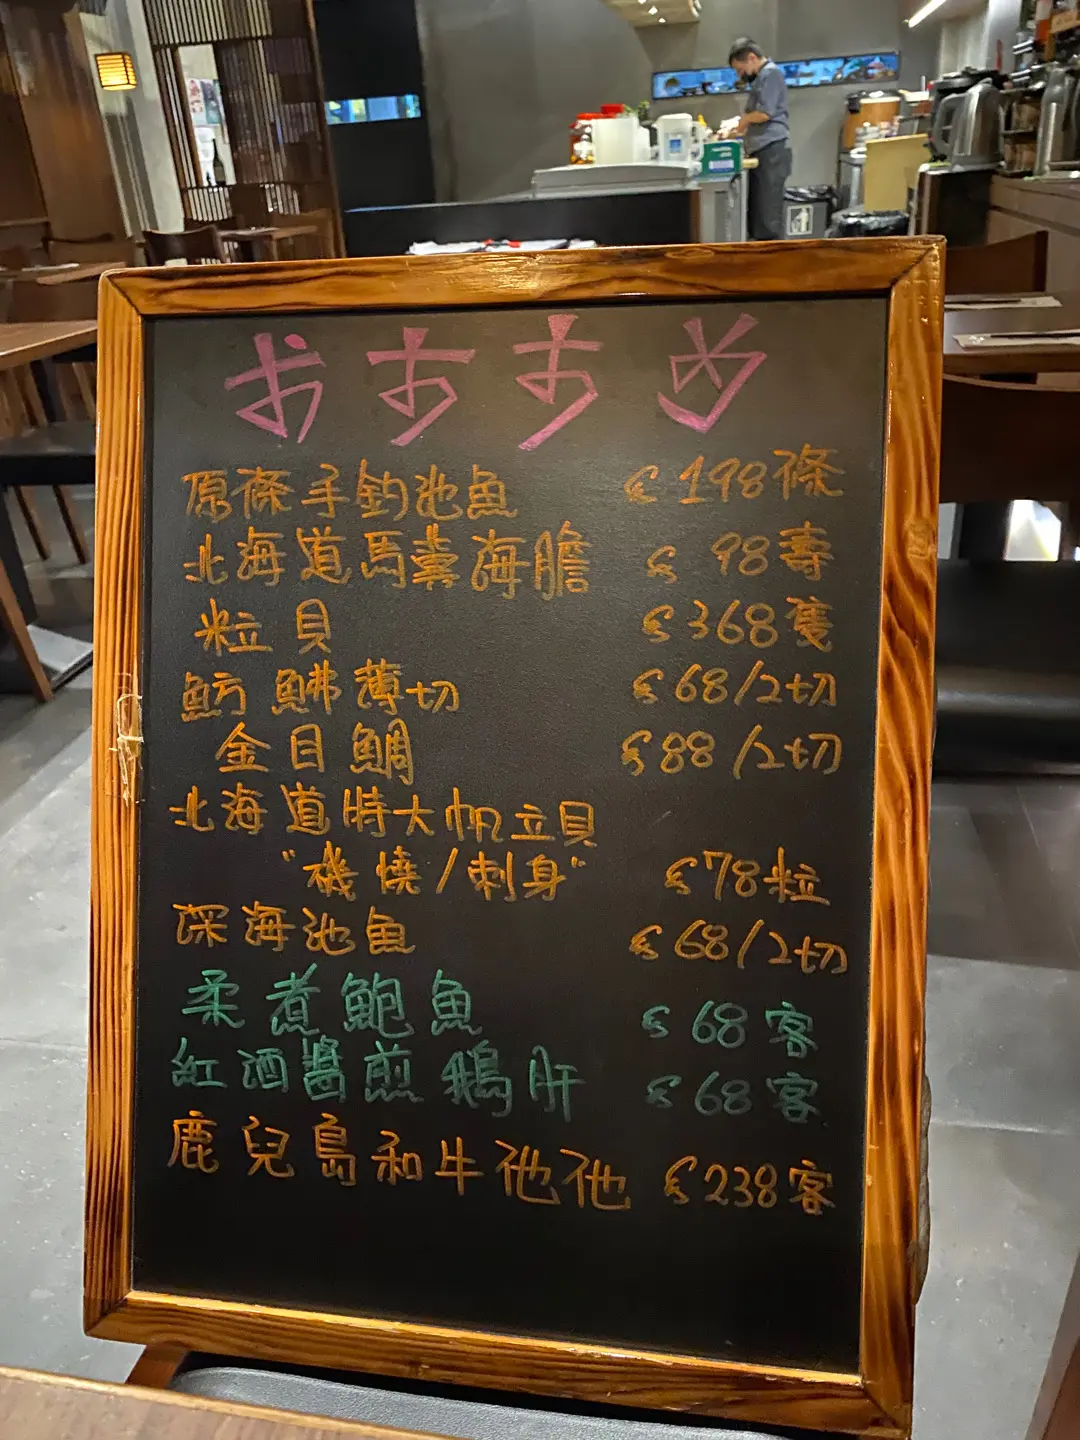 おすすめ
原條手釣池魚 $198條
北海道馬糞海膽 $98壽
粒貝 $368隻
魴鮄薄切 $68/2切
金目鯛 $88/2切
北海道特大帆立貝
"磯燒/刺身" $78粒
深海池魚 $68/2切
柔煮鮑魚 $68客
紅酒醬煎鵝肝 $68客
鹿兒島和牛他他 $238客